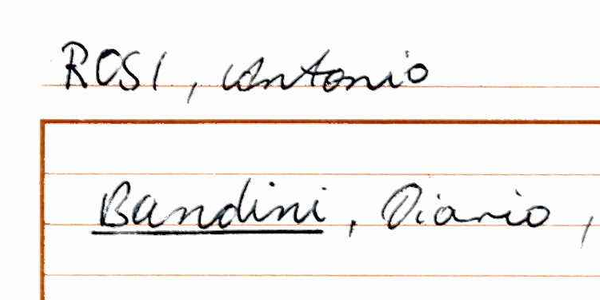 ROSI, Antonio
Bandini, Diario,